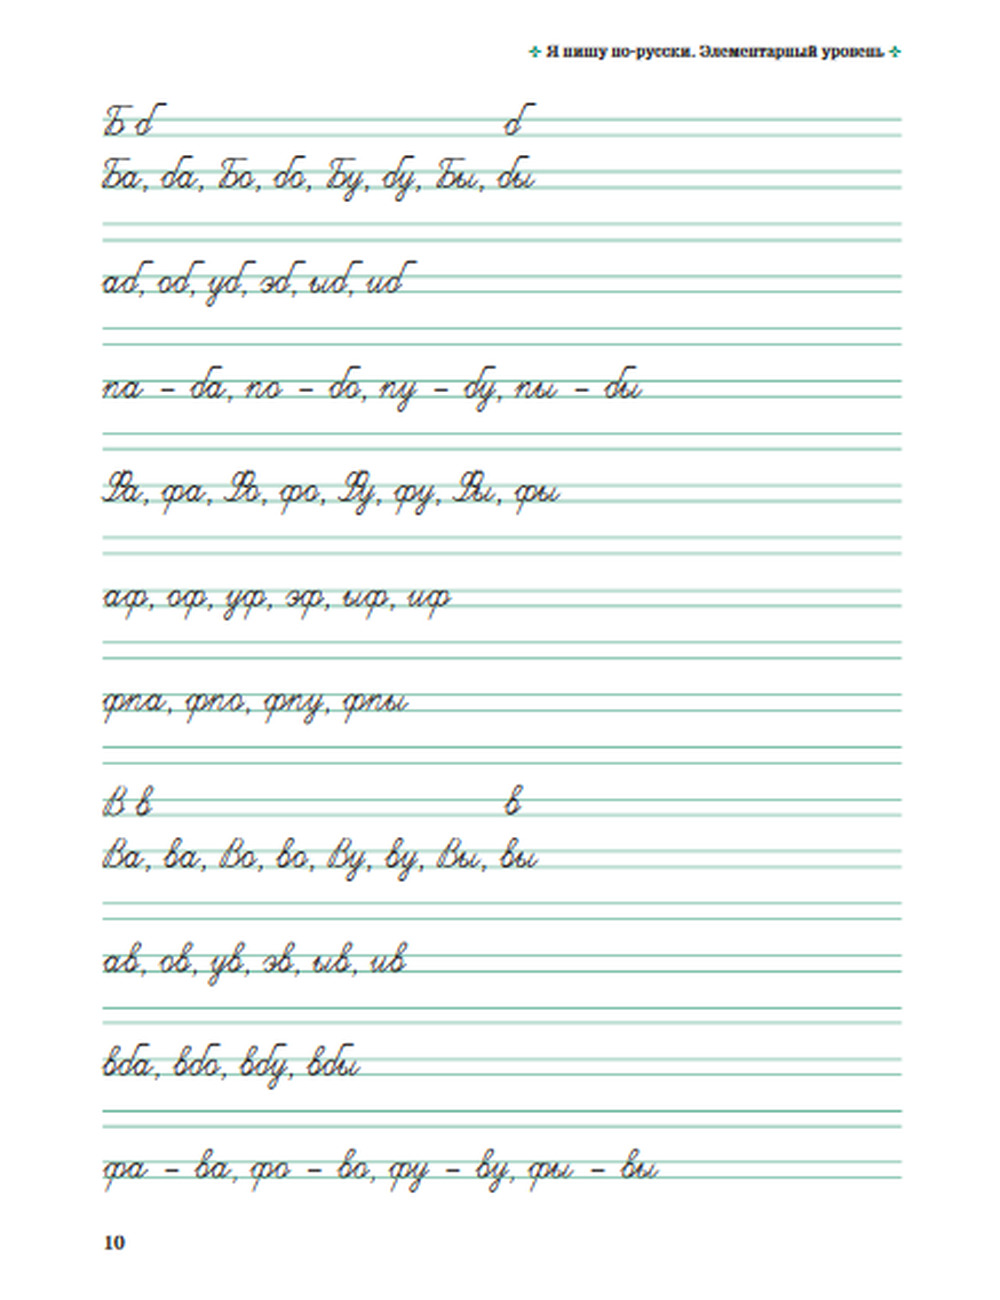 Я пишу по-русски. Элементарный уровень
Б б б
Ба, ба, Бо, бо, Бу, бу, Бы, бы
аб, об, уб, эб, ыб, иб
па – ба, по – бо, пу – бу, пы – бы
Фа, фа, Фо, фо, Фу, фу, Фы, фы
аф, оф, уф, эф, ыф, иф
фпа, фпо, фпу, фпы
В в в
Ва, ва, Во, во, Ву, ву, Вы, вы
ав, ов, ув, эв, ыв, ив
вба, вбо, вбу, вбы
фа – ва, фо – во, фу – ву, фы – вы
10